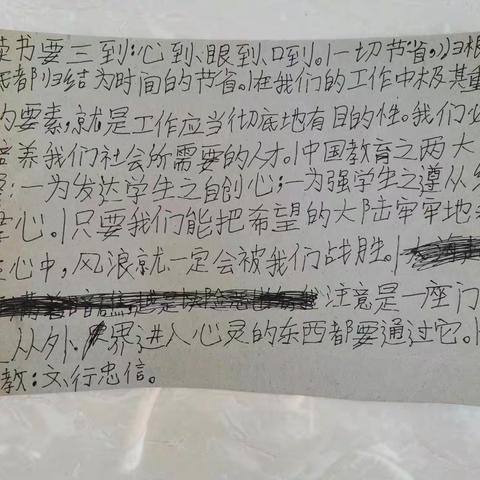 读书要三到:心到、眼到、口到。|一切节省,归根
都归结为时间的节省。|在我们的工作中极其重
要素,就是工作应当彻底地有目的性。我们
培养我们社会所需要的人才。|中国教育之两大
:一为发达学生之自创心;一为强学生之遵从
心。|只要我们能把希望的大陆牢牢地
心中,风浪就一定会被我们战胜。|
注意是一座门
从外界进入心灵的东西都要通过它。|
教:文、行忠信。